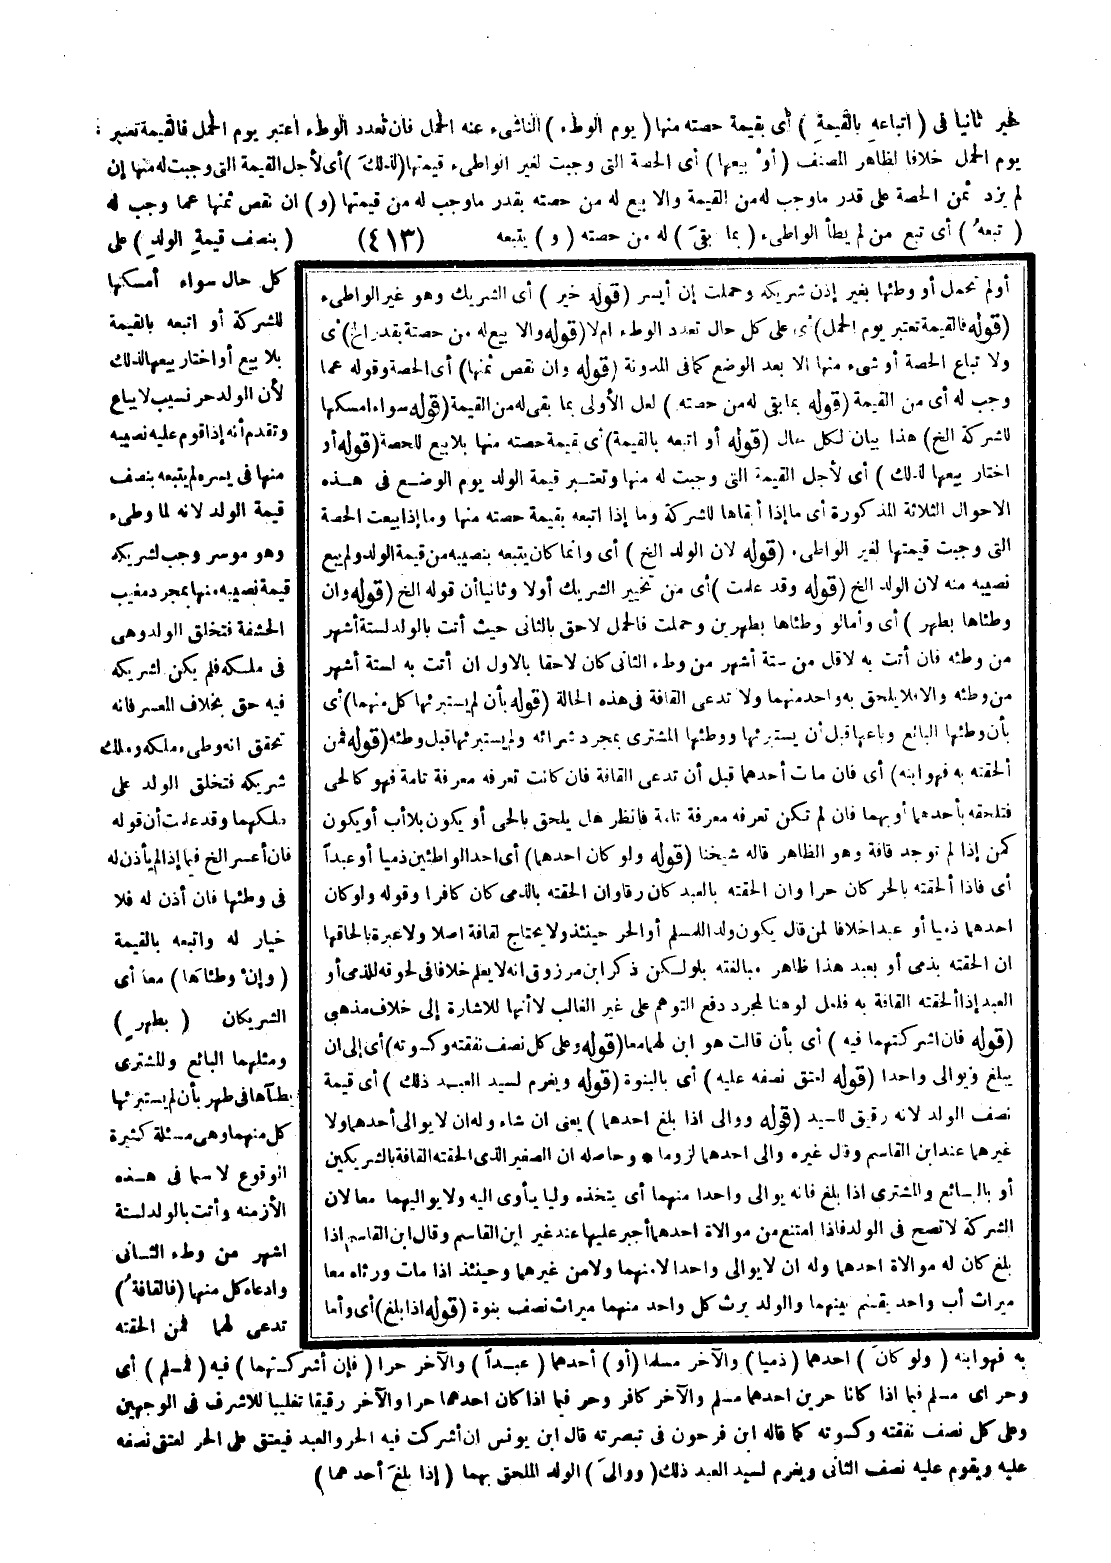 خير ثانيا فى ( اتباعه بالقيمة ) أى بقيمة حصته منها ( يوم الوطء ) الناشىء عنه الحمل فان تعدد الوطء اعتبر يوم الحمل فالقيمة تعتبر
يوم الحمل خلافا لظاهر المصنف ( أوْ بيعها ) أى الحصة التى وجبت لغير الواطىء قيمتها (لذلكَ) أى لأجل القيمة التى وجبت له منها إن
لم يزد ثمن الحصة على قدر ماوجب له من القيمة والا بيع له من حصته بقدر ماوجب له من قيمتها (و) ان نقص ثمنها عما وجب له
( تبعهُ ) أى تبع من لم يطأ الواطىء ( بما بقىَ ) له من حصته ( و ) يتبعه (٤١٣) ( بنصف قيمةِ الولدِ ) على
كل حال سواء أمسكها
للشركة أو اتبعه بالقيمة
بلا بيع أو اختار بيعها لذلك
لأن الولد حر نسيب لا يباع
وتقدم أنه إذا قوم عليه نصيبه
منها فى يسره لم يتبعه بنصف
قيمة الولد لانه لما وطىء
وهو موسر وجب لشريكه
قيمة نصيبه منها بمجرد مغيب
الحشفة فتخلق الولد وهى
فى ملكه فلم يكن لشريكه
فيه حق بخلاف المعسر فانه
تحقق انه وطىء ملكه وملك
شريكه فتخلق الولد على
ملكهما وقد علمت أن قوله
فان أعسر الخ فيما إذا لم يأذن له
فى وطئها فان أذن له فلا
خيار له واتبعه بالقيمة
( وإنْ وطئاها ) معا أى
الشريكان ( بطهرٍ )
ومثلهما البائع والمشترى
يطآها فى طهر بأن لم يستبرئها
كل منهما وهى مسئلة كثيرة
الوقوع لا سيما فى هذه
الأزمنه وأتت بالولد لستة
اشهر من وطء الثانى
وادعاه كل منهما (فالقافةُ)
تدعى لهما فمن الحقته
أولم تحمل أو وطئها بغير إذن شريكه وحملت إن أيسر (قوله خير ) أى الشريك وهو غير الواطىء
(قوله فالقيمة تعتبر يوم الحمل) أى على كل حال تعدد الوطء ام لا (قوله والا بيع له من حصته بقدر الخ) أى
ولا تباع الحصة أو شىء منها الا بعد الوضع كما فى المدونة (قوله وان نقص ثمنها) أى الحصة وقوله عما
وجب له أى من القيمة (قوله بما بقى له من حصته ) لعل الأولى بما بقى له من القيمة (قوله سواء امسكها
للشركة الخ) هذا بيان لكل حال (قوله أو اتبعه بالقيمة) أى قيمة حصته منها بلا بيع للحصة (قوله أو
اختار بيعها لذلك ) أى لأجل القيمة التى وجبت له منها وتعتبر قيمة الولد يوم الوضع فى هذه
الاحوال الثلاثة المذكورة أى ما إذا أبقاها للشركة وما إذا اتبعه بقيمة حصته منها وما إذا بيعت الحصة
التى وجبت قيمتها لغير الواطىء (قوله لان الولد الخ ) أى وانما كان يتبعه بنصيبه من قيمة الولد ولم يبع
نصيبه منه لان الولد الخ (قوله وقد علمت ) أى من تخيير الشريك أولا وثانيا أن قوله الخ (قوله وان
وطئاها بطهر ) أى وأما لو وطئاها بطهرين وحملت فالحمل لاحق بالثانى حيث أتت بالولد لستة أشهر
من وطئه فان أتت به لاقل من ستة أشهر من وطء الثانى كان لاحقا بالاول ان أتت به لستة أشهر
من وطئه والا فلا يلحق به واحد منهما ولا تدعى القافة فى هذه الحالة (قوله بأن لم يستبرئها كل منهما) أى
بأن وطئها البائع وباعها قبل أن يستبرئها ووطئها المشترى بمجرد شرائه ولم يستبرئها قبل وطئه (قوله فمن
ألحقته به فهو ابنه) أى فان مات أحدهما قبل أن تدعى القافة فان كانت تعرفه معرفة تامة فهو كالحى
فتلحقه بأحدهما أو بهما فان لم تكن تعرفه معرفة تامة فانظر هل يلحق بالحى أو يكون بلا أب أو يكون
كمن إذا لم توجد قافة وهو الظاهر قاله شيخنا (قوله ولو كان احدهما) أى احد الواطئين ذميا أو عبداً
أى فاذا ألحقته بالحر كان حرا وان الحقته بالعبد كان رقا وان الحقته بالذمى كان كافرا وقوله ولو كان
احدهما ذميا أو عبد اخلافا لمن قال يكون ولدا للمسلم أو الحر حينئذ ولا يحتاج لقافة اصلا ولا عبرة بالحاقها
ان الحقته بذمى أو بعبد هذا ظاهر مبالغته بلو لكن ذكر ابن مرزوق انه لا يعلم خلافا فى لحوقه للذمى أو
العبد إذا ألحقته القافة به فلعل لو هنا لمجرد دفع التوهم على غير الغالب لا أنها للاشارة إلى خلاف مذهبى
(قوله فان اشركتهما فيه ) أى بأن قالت هو ابن لهما معا (قوله وعلى كل نصف نفقته وكسوته) أى إلى ان
يبلغ ويوالى واحدا (قوله لعتق نصفه عليه ) أى بالبنوة (قوله ويغرم لسيد العبد ذلك ) أى قيمة
نصف الولد لانه رقيق للسيد (قوله ووالى اذا بلغ احدهما ) يعنى ان شاء وله ان لا يوالى أحدهما ولا
غيرهما عند ابن القاسم وقال غيره والى احدهما لزوما • وحاصله ان الصغير الذى الحقته القافة بالشريكين
أو بالبائع والمشترى اذا بلغ فانه يوالى واحدا منهما أى يتخذه وليا يأوى اليه ولا يواليهما معا لان
الشركة لا تصح فى الولد فاذا امتنع من موالاة احدهما أجبر عليها عند غير ابن القاسم وقال ابن القاسم اذا
بلغ كان له موالاة احدهما وله ان لا يوالى واحدا لا منهما ولا من غيرهما وحينئذ اذا مات ورثاه معا
ميراث أب واحد يقسم بينهما والولد يرث كل واحد منهما ميراث نصف بنوة (قوله اذا بلغ) أى وأما
به فهو ابنه ( ولو كانَ ) احدهما (ذميا) والآخر مسلما (أو ) أحدهما ( عبداً ) والآخر حرا ( فإن أشركتهما ) فيه ( فمسلم ) أى
وحر اى مسلم فيما اذا كانا حرين احدهما مسلم والآخر كافر وحر فيما اذا كان احدهما حرا والآخر رقيقا تغليبا للاشرف فى الوجهين
وعلى كل نصف نفقته وكسوته كما قاله ابن فرحون فى تبصرته قال ابن يونس ان أشركت فيه الحر والعبد فيعتق على الحر لعتق نصفه
عليه ويقوم عليه نصف الثانى ويغرم لسيد العبد ذلك ( ووالىَ ) الولد الملحق بهما ( إذا بلغَ أحدهما )